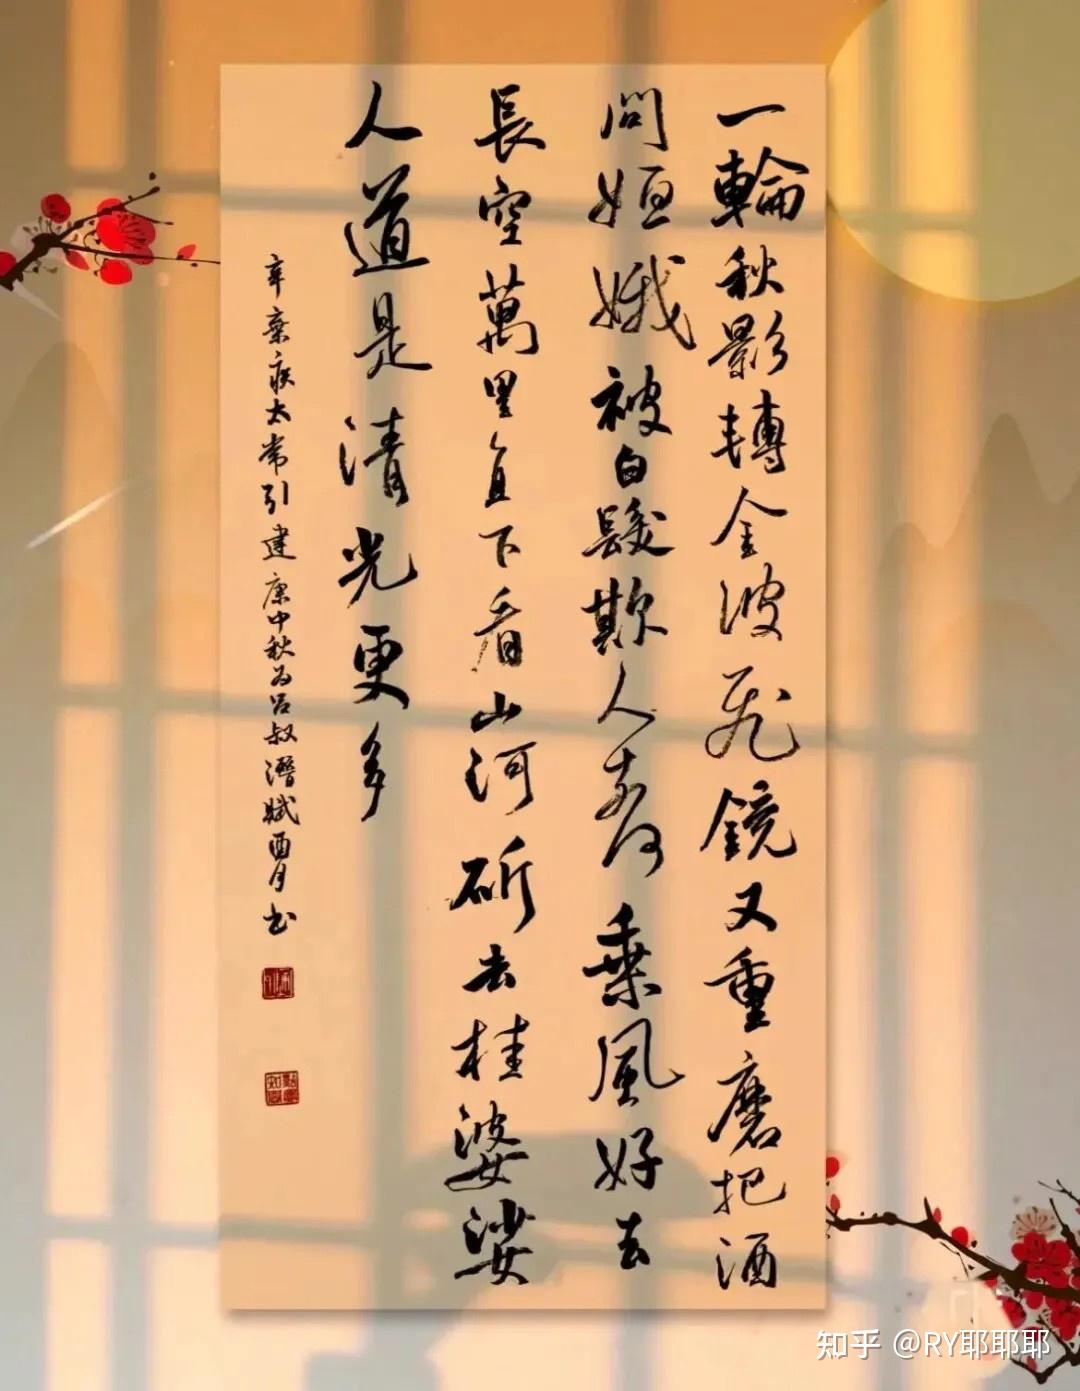 一輪秋影轉金波飛鏡又重磨把酒
問姮娥被白髮欺人奈何乘風好去
長空萬里直下看山河斫去桂婆娑
人道是清光更多
辛棄疾太常引建康中秋為呂叔潛賦酉月书
知乎 @RY耶耶耶